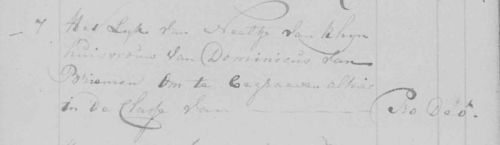 7 Het Lyk van Neeltje van Rhyn
huisvrouw van Dominicus van
om te begraaven alhier
in de Classe van — Pro Deo.